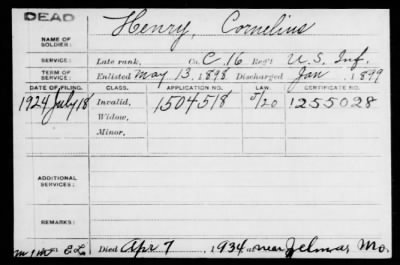 DEAD
NAME OF SOLDIER: Henry, Cornelius
SERVICE: Late rank, Co. C. 16 Reg't U. S. Inf.
TERM OF SERVICE: Enlisted May 13, 1898 Discharged Jan , 1899
DATE OF FILING. CLASS. APPLICATION NO. LAW. CERTIFICATE NO.
1924 July 18 Invalid, 1504518 5/20 1255028
Widow,
Minor,
ADDITIONAL SERVICES:
REMARKS:
Died Apr 7 , 1934 at near Mo.